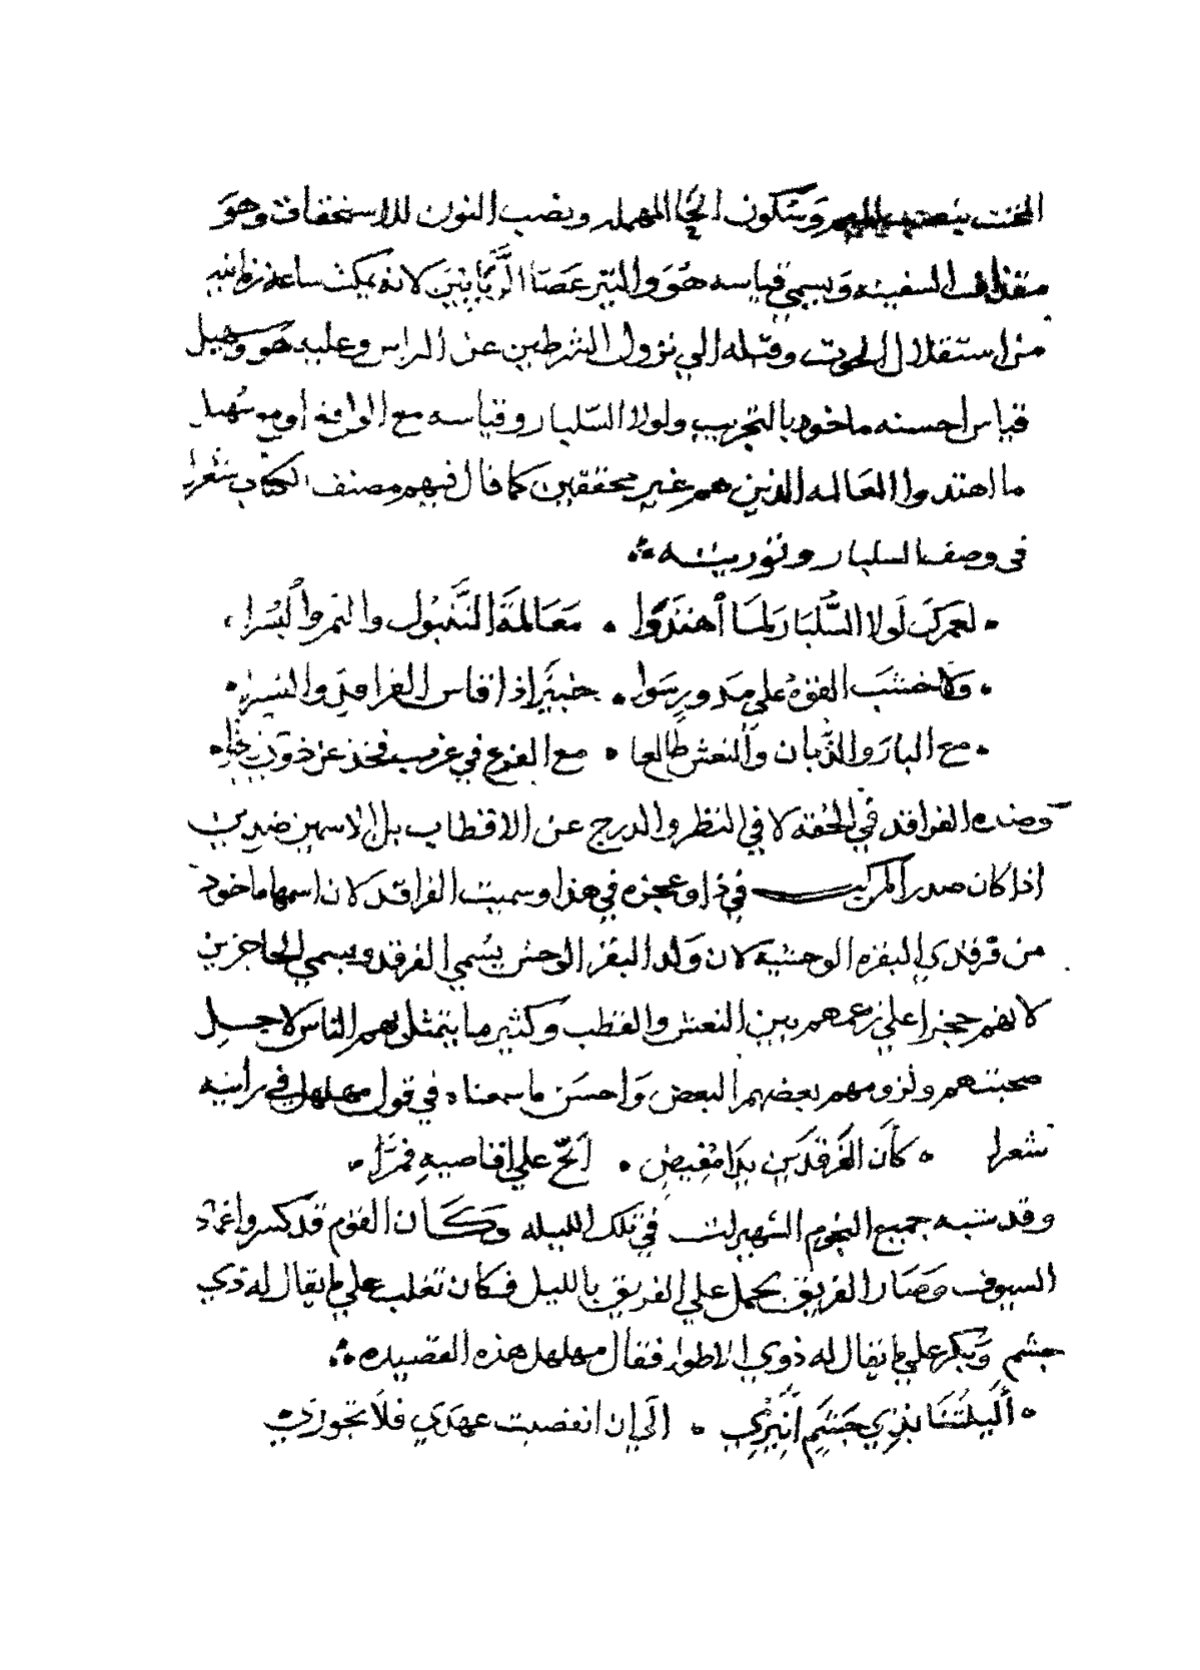 وسكون الحا المهمله ونصب النون للاستحقاق وهو
السفينه ويسمي قياسه هو والتير عصا الربابنين لانه يمكث ساعه زمانيه
من استقلال الحوت وقبله الي نزول الشرطين عن الراس وعليه هو وسهيل
قياس احسنه ماخود بالتجريب ولولا السلبار وقياسه مع الواقع او مع سهيل
ما اهتدوا العالمه الذين هم غير محققين كما قال فيهم مصنف الكتاب شعرا
في وصف السلبار وتوريته
لعمرك لولا السلبار لما أهتدوا • معالمة التنبول والتمر والبسرا
ولا خشب الفوه علي مد ورسوا • خبيرا اذا قاس الفراقد والنسرا
• مع البار والذبان والنعش طالعا • مع الفرغ في غرب فخذ عن
وضده الفراقد في الحقه لا في النظر والدرج عن الاقطاب بل الاسهن ضدين
اذا كان صدر المركب في ذا وعجزه في هذا وسميت الفراقد لان اسمها ماخود
من فرقدي البقره الوحشيه لان ولد البقر الوحش يسمي الفرقد ويسمي الحاجزين
لانهم حجزا علي زعمهم بين النعش والقطب وكثير ما يتمثل بهم الناس لاجل
صحبتهم ولزومهم بعضهم البعض واحسن ما سمعناه في قول مهلهل في رائيه
شعرا • كأن الفرقدين يدا مفيض • الح علي اقاصيه قمرا •
وقد شبه جميع النجوم الشهيرات في تلك الليله وكان القوم قد كسروا اغماد
السيوف وصار الفريق يحمل علي الفريق بالليل فكان تغلب علي ما يقال له ذي
جشم وبكر علي ما يقال له ذوي الاطوا فقال مهلهل هذه القصيده
• أليلتنا بذي جشم انيري • الي ان انقضيت عهدي فلا تحوري